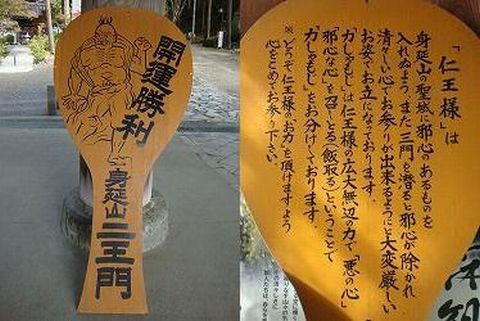 開運勝利
身延山二王門
「仁王様」は
身延山の聖域に邪心のあるものを
入れぬよう また三門を潜ると邪心が除かれ
清々しい心でお参りが出来るようにと大変厳しい
お姿でお立になっております。
「力しゃもじ」は仁王様の広大無辺の力で「悪の心」
「邪心な心」を召しとる(飯取る)ということで
「力しゃもじ」をお分けしております。
※どうぞ仁王様のお力を頂けますよう
心をこめてお参り下さい。